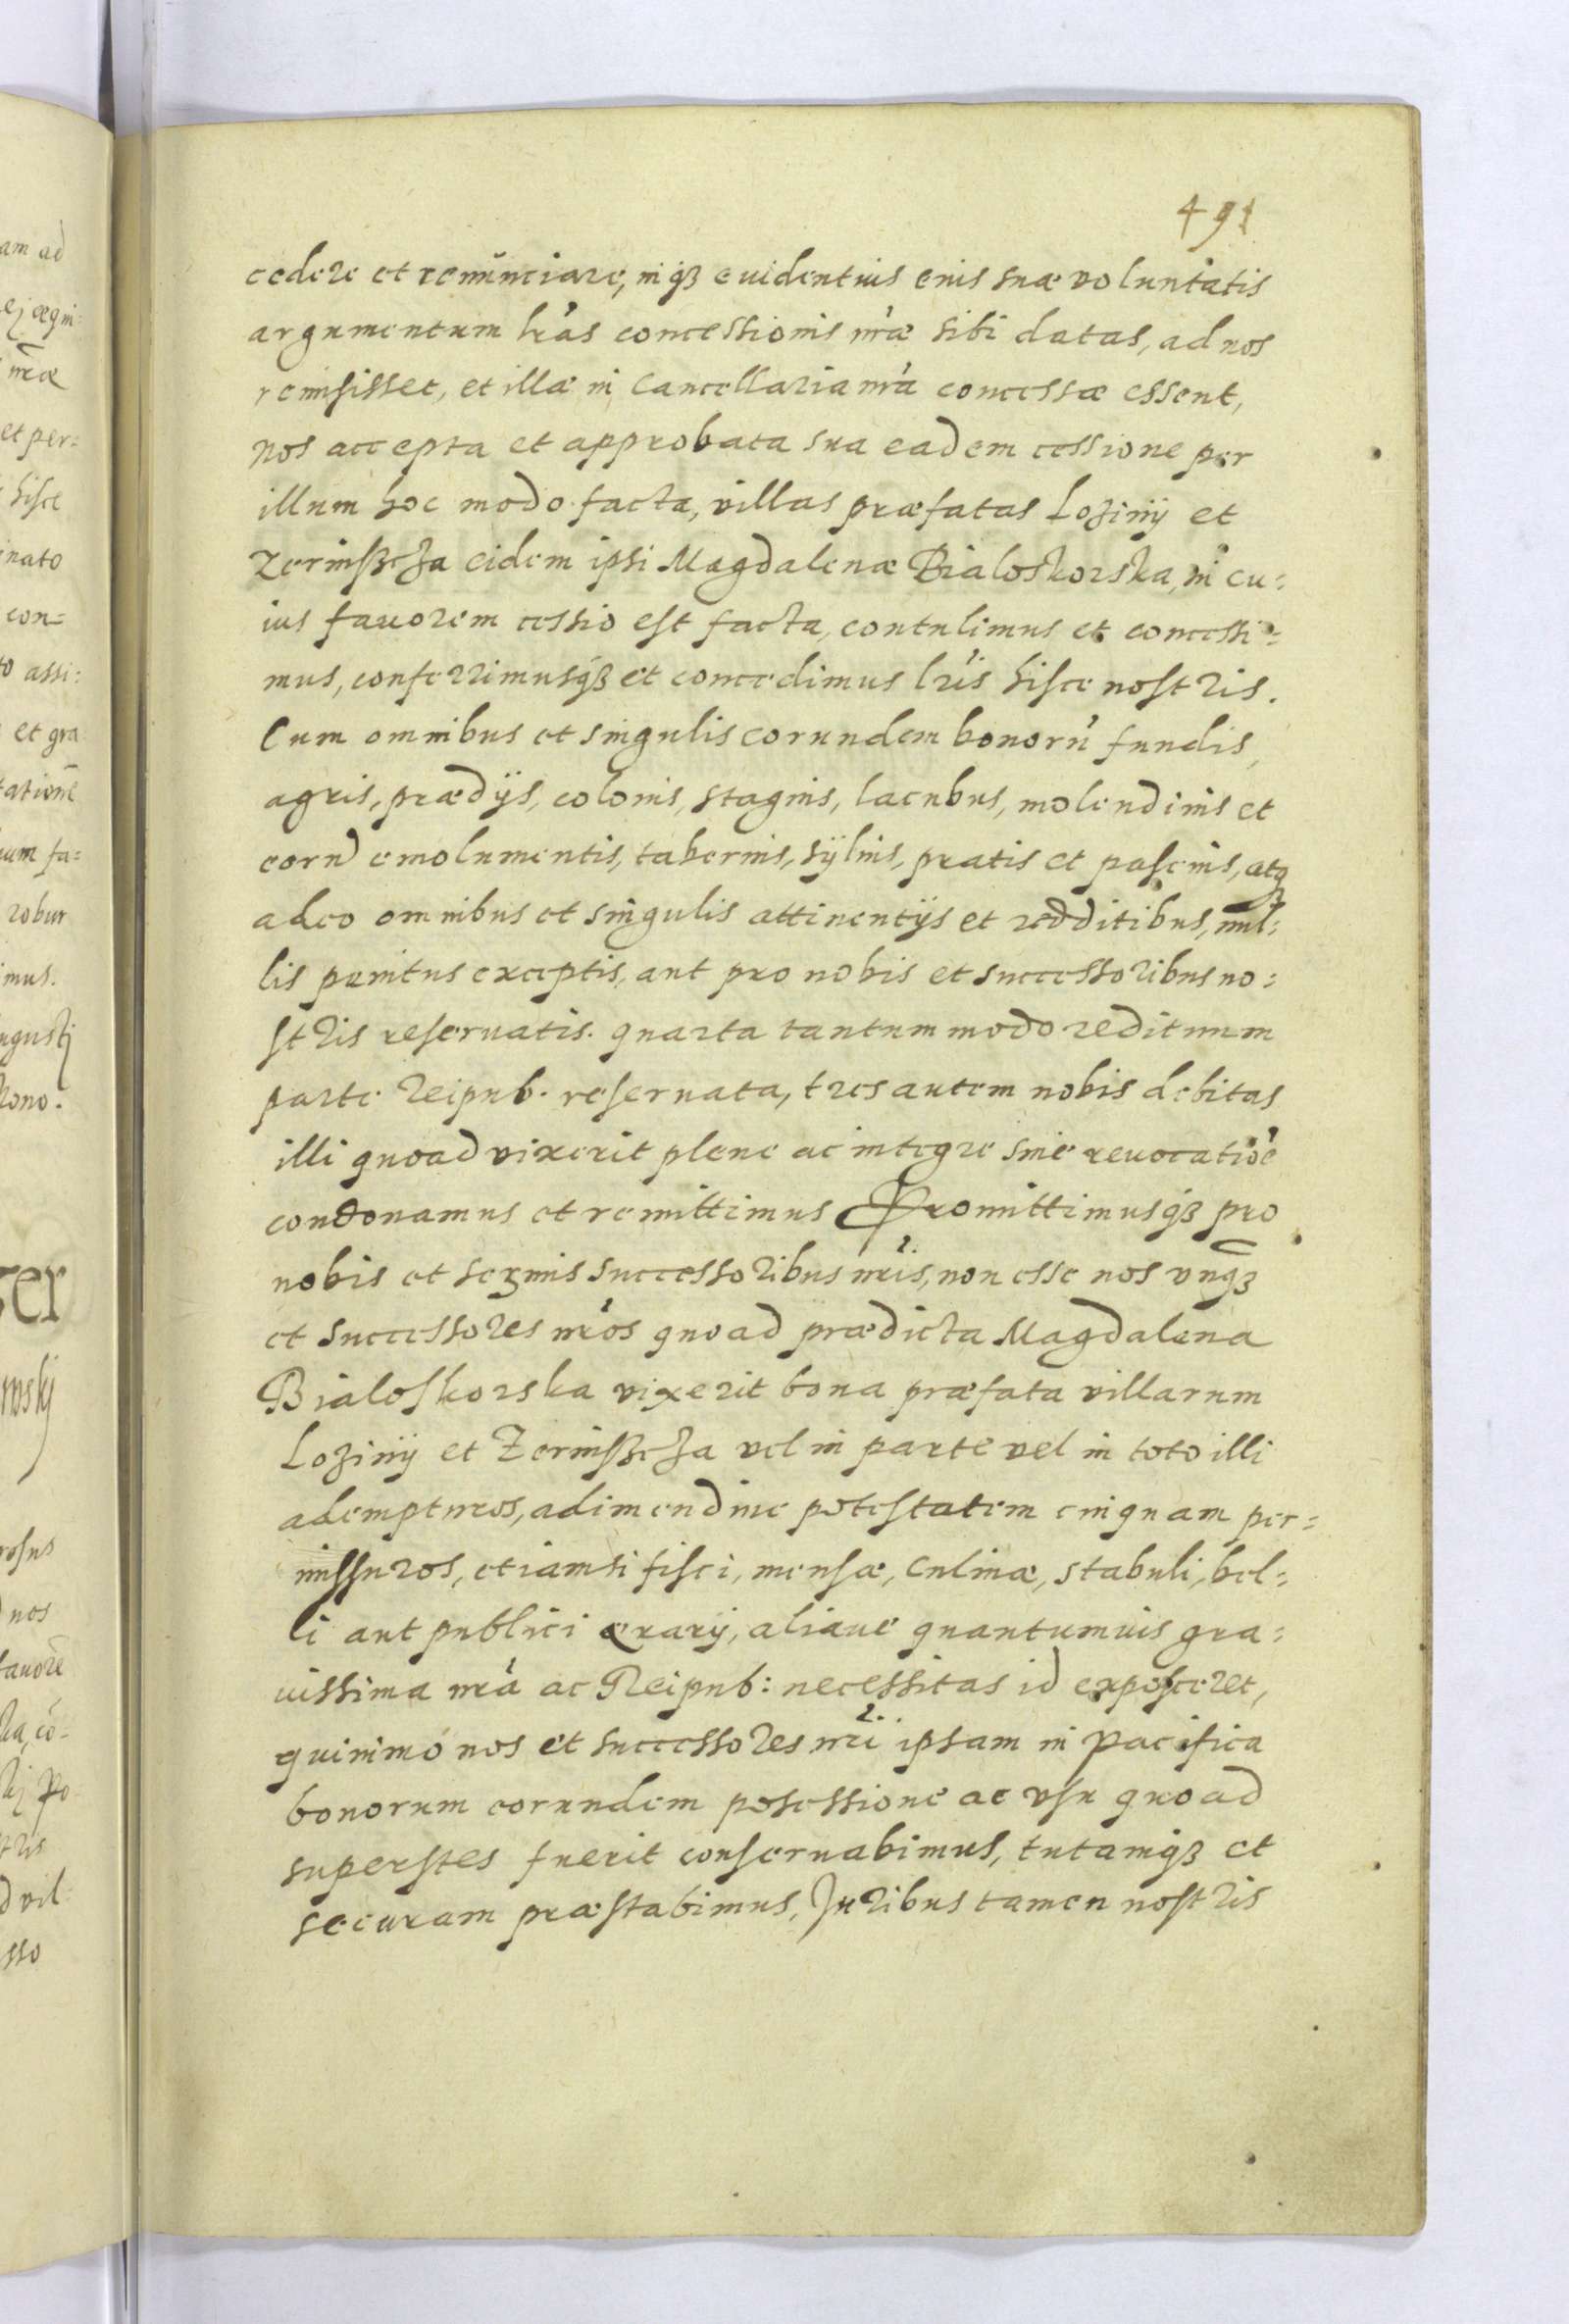 491
cedere et renunciare, inq₃ euidentius enis suæ voluntatis
argumentum lr̃as concessionis nr̃æ sibi datas, ad nos
remisisset, et illæ in Cancellaria nr̃a concessæ essent,
nos accepta et approbata sua eadem cessione per
illum hoc modo facta, villas præfatas Loziny et
Zerinßcza eidem ipsi Magdalenæ Bialoskorska, in cu:
ius fauorem cessio est facta, contulimus et concessi:
mus, conferrimusq₃ et concedimus lr̃is hisce nostris.
Cum omnibus et singulis eorundem bonorũ fundis,
agris, prædijs, colonis, stagnis, lacubus, molendinis et
eorũ emolumentis, tabernis, syluis, pratis et pascuis, atq₃
adeo omnibus et singulis attinentijs et redditibus, nul:
lis penitus exceptis, aut pro nobis et successoribus no:
stris reseruatis. quarta tantummodo redituum
parte Reipub. reseruata, tres autem nobis debitas
illi quoad vixerit plene ac integre sine reuocatiõe
condonamus et remittimus Promittimusq₃ pro
nobis et sermis successoribus nr̃is, non esse nos vnq₃
et successores nr̃os quoad prædicta Magdalena
Bialoskorska vixerit bona præfata villarum
Loziny et Zerinßcza vel in parte vel in toto illi
adempturos, adimendiue potestatem cuiquam per:
missuros, etiamsi fisci, mensæ, Culinæ, stabuli, bel:
li aut publici ærarij, aliaue quantumuis gra:
uissima nr̃a ac Reipub: necessitas id exposceret,
quinimò nos et successores nr̃i ipsam in pacifica
bonorum eorundem posessione ac vsu quoad
superstes fuerit conseruabimus, tutamq₃ et
securam præstabimus, Juribus tamen nostris